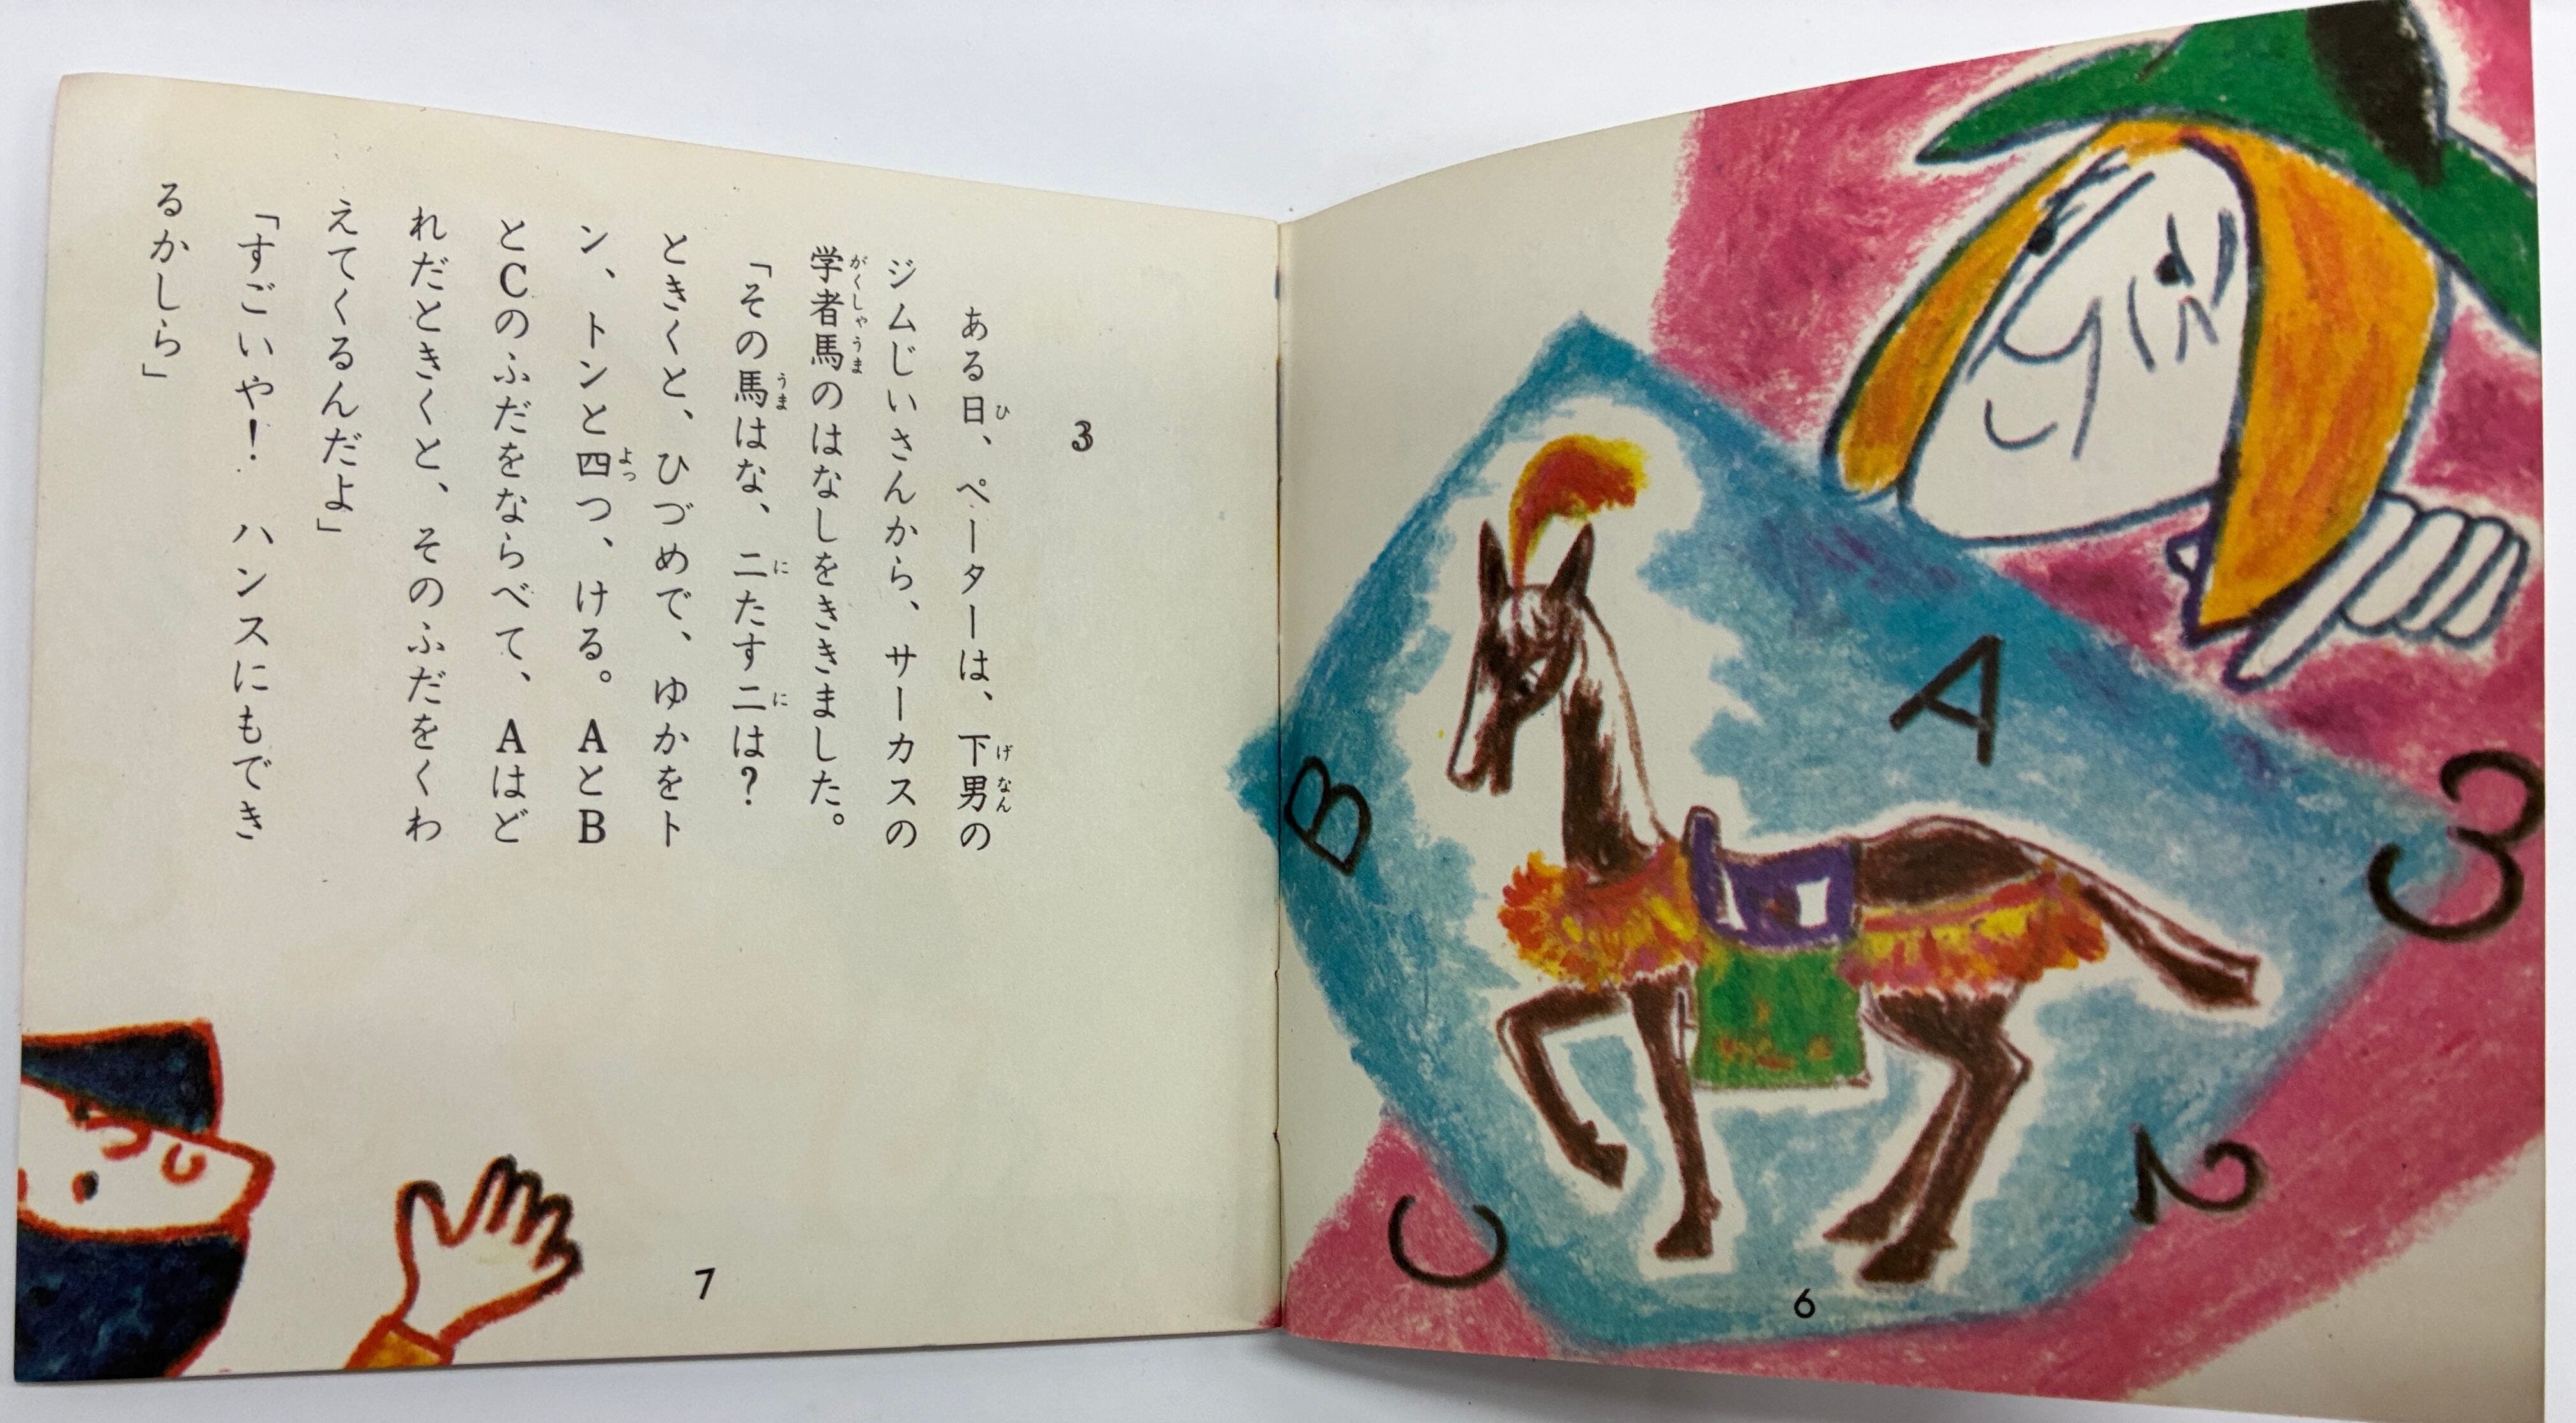 A
B
C
3
2
6
3
ある日、ペーターは、下男の
ジムじいさんから、サーカスの
学者馬のはなしをききました。
「その馬はな、二たす二は?
ときくと、ひづめで、ゆかをト
ン、トンと四つ、ける。AとB
とCのふだをならべて、Aはど
れだときくと、そのふだをくわ
えてくるんだよ」
「すごいや! ハンスにもでき
るかしら」
7
ひ
げなん
がくしゃうま
うま
に
に
よっ